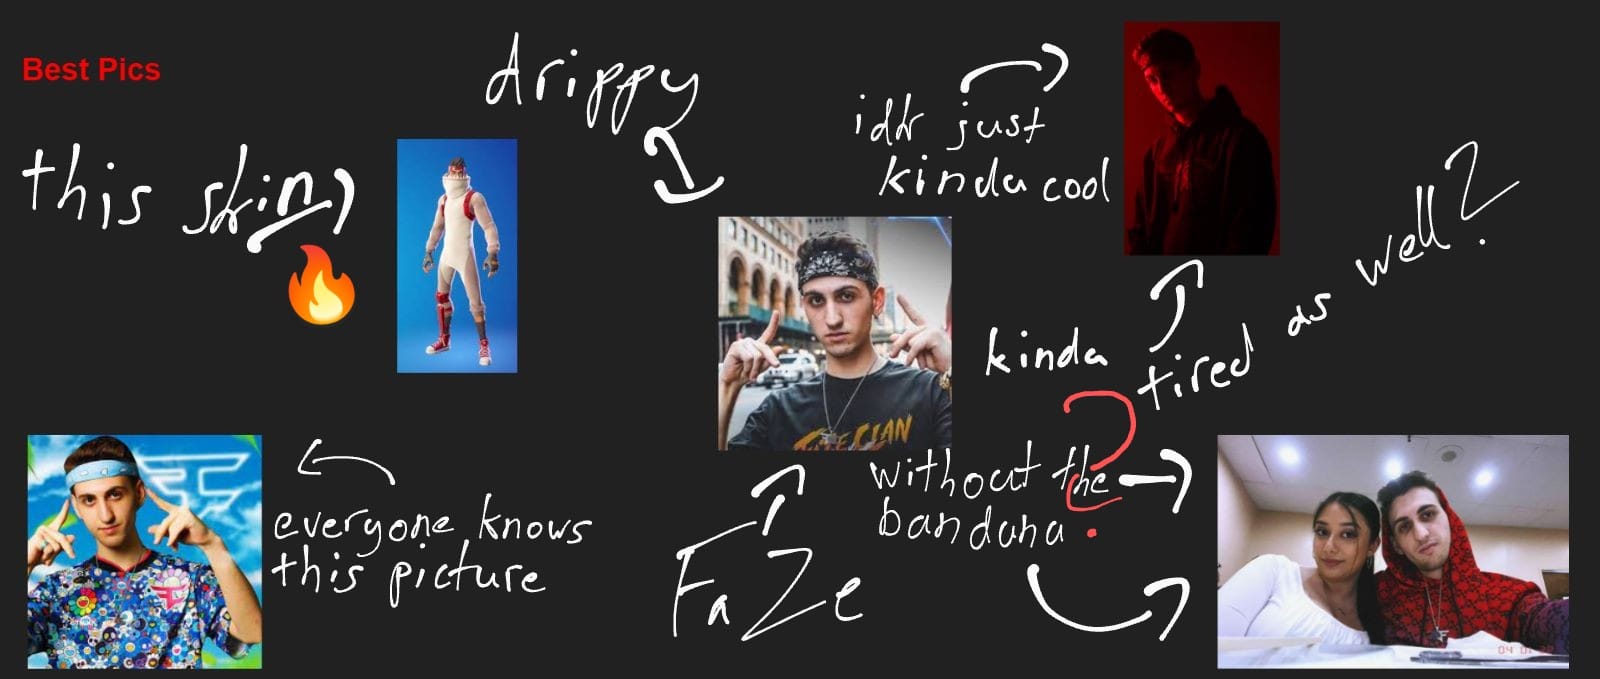 Best Pics
drippy
this skin
idk just
kinda cool
kinda tired as well?
everyone knows
this picture
FaZe
without the
bandana
CLAN